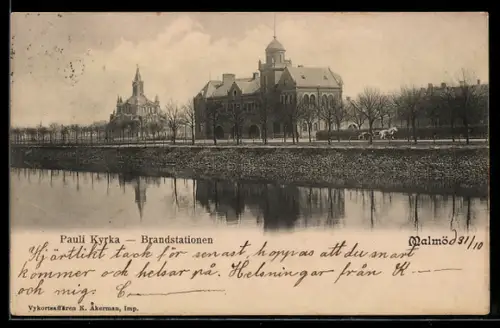 Pauli Kyrka — Brandstationen
Malmö 31/10
Hjärtlikt tack för senast, hoppas att du snart
kommer och helsar på. Helsningar från K—
och mig: E—
Vykortsaffären K. Åkerman, Imp.